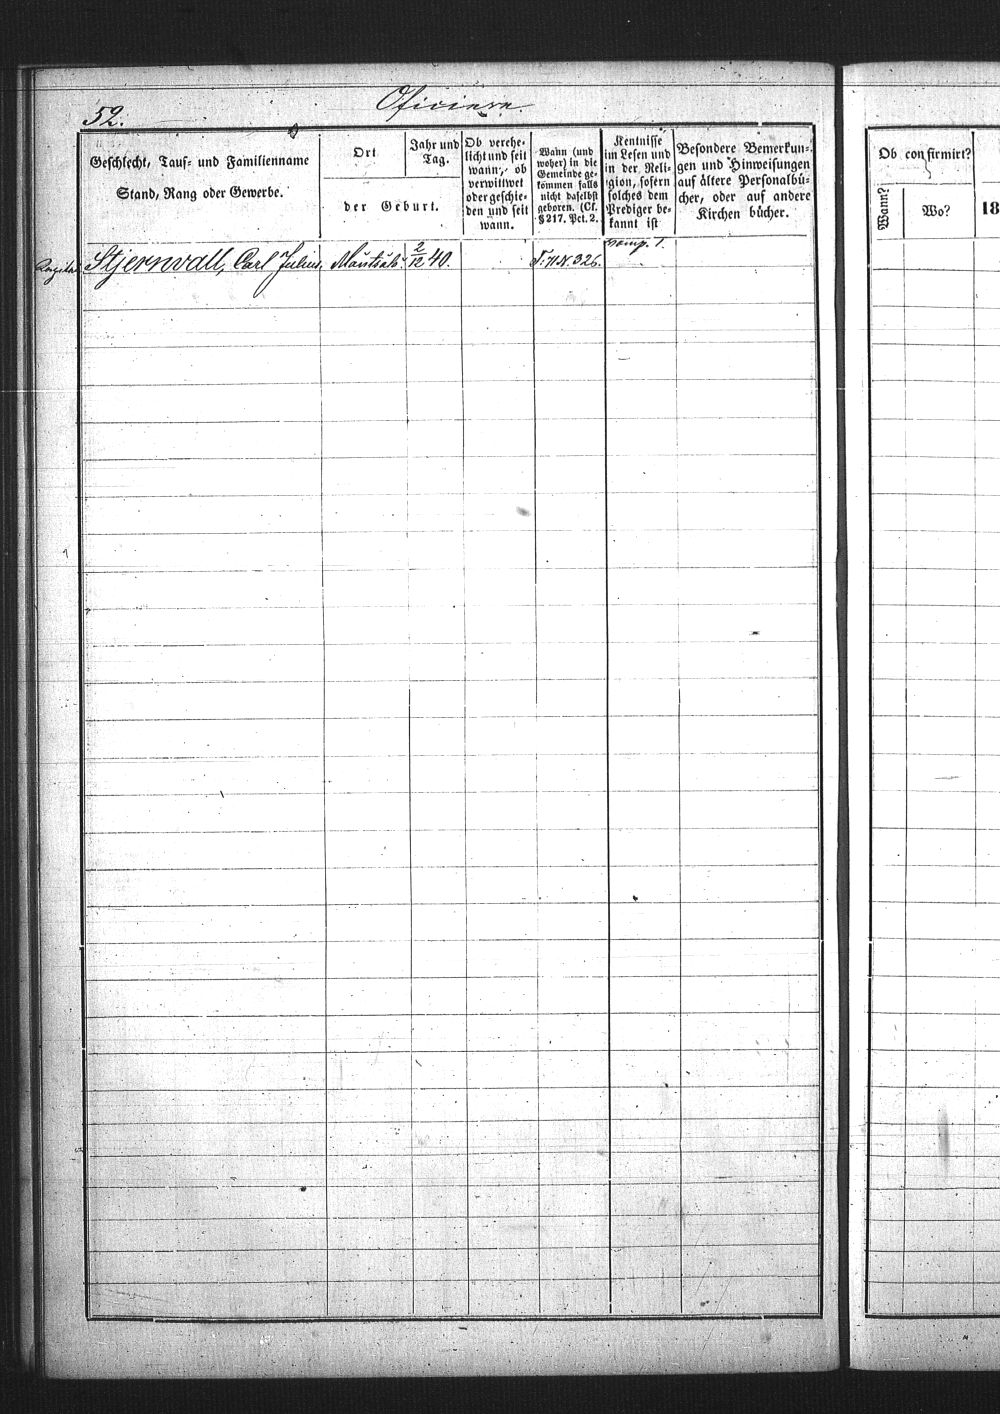 52.
Oficiere
Geschlecht, Tauf- und Familienname
Stand, Rang oder Gewerbe.
Ort
Jahr und
Tag.
der Geburt.
Ob verehe-
licht und seit
wann, ob
verwittwet
oder geschie-
den und seit
wann.
Wann (und
woher) in die
Gemeinde ge-
kommen falls
nicht daselbst
geboren. (Cf.
§ 217. Pct. 2.
Kentnisse
im Lesen und
in der Reli-
gion, sofern
solches dem
Prediger be-
kannt ist
Besondere Bemerkun-
gen und Hinweisungen
auf ältere Personalbü-
cher, oder auf andere
Kirchen bücher.
Stjernvall, Carl Julius, 2/12 40. N. 326.
Ob confirmirt?
Wann?
Wo?
18